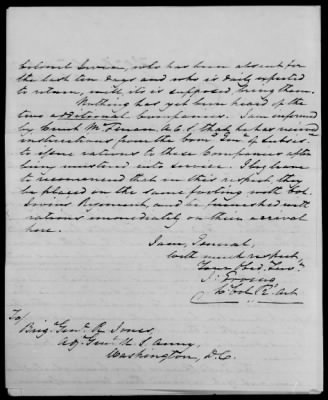 Colonel Irwin, who has been absent for
the last ten days and who is daily expected
to return, will, it is supposed bring them.
Nothing has yet been heard of the
two additional Companies. I am informed
by Lieut McLean, A.C.S. that he has recvd
instructions from the Com Gen of Subsis.
to issue rations to these Companies after
being mustered into service. I beg leave
to recommend that in this respect they
be placed on the same footing with Col.
Irwins Regiment, and be furnished with
rations immediately on their arrival
here.
I am, General,
With much respect,
Your Obed. Servt
Lt Col. Rt. Art
To/
Brig. Genl. R. Jones,
Adj. Genl. U. S. Army,
Washington, D.C.